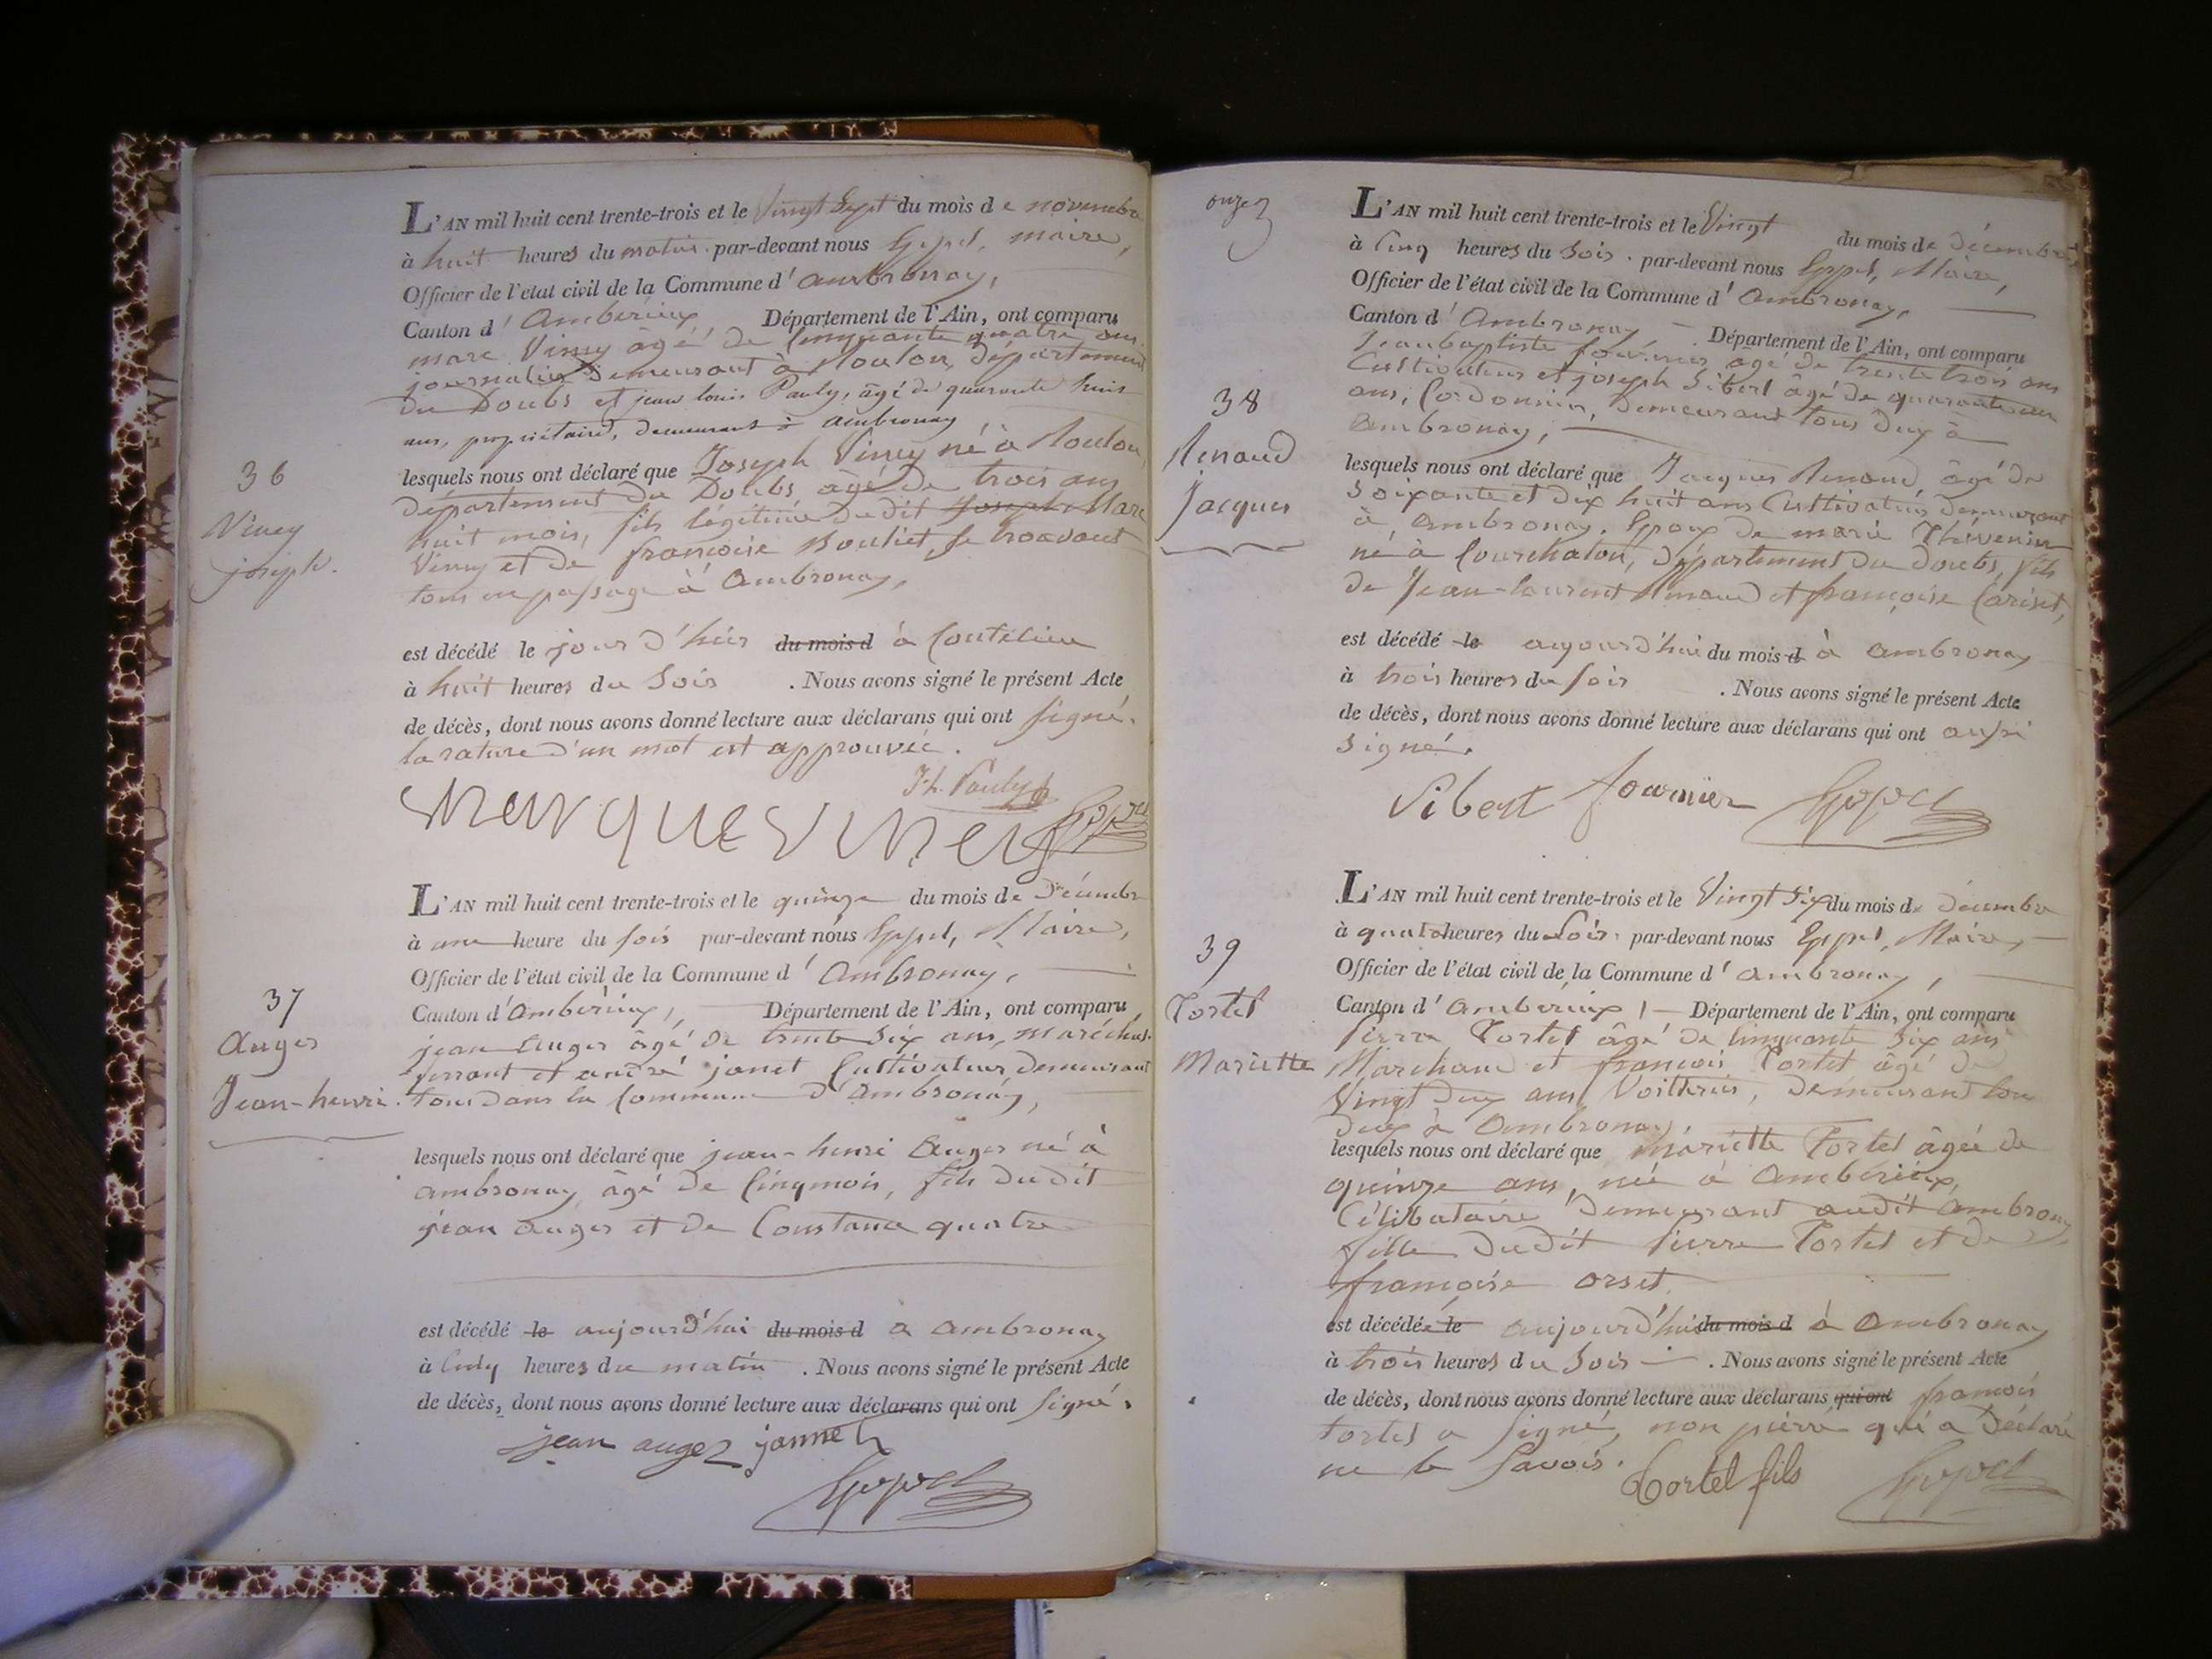 L'AN mil huit cent trente-trois et le Vingt Sept du mois de novembre
à huit heures du matin par-devant nous Geppel, maire,
Officier de l'état civil de la Commune d'ambronay,
Canton d'Amberieux Département de l'Ain, ont comparu
marc Viney âgé de Cinquante quatre ans
journalier demeurant à Moulon, département
du Doubs et jean louis Pauly, âgé de quarante huit
ans, propriétaire, demeurant à ambronay
36
Viney
joseph.
lesquels nous ont déclaré que Joseph Viney né à Moulon,
département du Doubs âgé de trois ans
huit mois, fils légitime dudit Joseph Marc
Viney et de françoise se trouvant
tous en passage à Ambronay,
est décédé le jour d'hier du mois d à Coutelieu
à huit heures du Soir . Nous avons signé le présent Acte
de décès, dont nous avons donné lecture aux déclarans qui ont signé.
la rature d'un mot est approuvée.
J. L. Pauly
marque viney
L'AN mil huit cent trente-trois et le quinze du mois de Décembre
à une heure du soir par-devant nous Geppel, Maire,
Officier de l'état civil de la Commune d'Ambronay,
Canton d'Amberieux, Département de l'Ain, ont comparu
37
Auger
Jean-henri.
jean Auger âgé de trente Six ans, maréchal
ferrant et andré janet Cultivateur, demeurant
tous dans la Commune d'Ambronay,
lesquels nous ont déclaré que jean-henri Auger né à
ambronay âgé de Cinq mois, fils dudit
jean auger et de Constance quatre
est décédé le aujourd'hui du mois d a ambronay
à heures du matin . Nous avons signé le présent Acte
de décès, dont nous avons donné lecture aux déclarans qui ont Signé.
jean auger jannet
Geppel
onze
L'AN mil huit cent trente-trois et le Vingt du mois de décembre
à Cinq heures du Soir. par-devant nous Geppel, Maire,
Officier de l'état civil de la Commune d'Ambronay,
Canton d'Ambronay Département de l'Ain, ont comparu
Jean baptiste fournier âgé de trente trois ans
Cultivateur et joseph Sibert âgé de quarante un
ans, Cordonnier, demeurant tous deux à
Ambronay,
38
Renaud
Jacques
lesquels nous ont déclaré que Jacques Renaud, âgé de
Soixante et dix huit ans Cultivateur demeurant
à Ambronay. Epoux de marie Thévenin
né à Courchaton, département du Doubs, fils
de Jean-laurent Renaud et françoise Cariset,
est décédé le aujourd'hui du mois d à ambronay
à trois heures du soir . Nous avons signé le présent Acte
de décès, dont nous avons donné lecture aux déclarans qui ont aussi
signé.
Sibert fournier Geppel
L'AN mil huit cent trente-trois et le Vingt Six du mois de décembre
à quatre heures du Soir. par-devant nous Geppel, Maire,
Officier de l'état civil de la Commune d'ambronay,
Canton d'Amberieux, Département de l'Ain, ont comparu
39
Tortel
Mariette
Pierre Tortel âgé de Cinquante Six ans
Marchand et françois Tortel âgé de
Vingt deux ans, Voiturier, demeurant tous
deux à Ambronay,
lesquels nous ont déclaré que mariette Tortel âgée de
quinze ans, née à Amberieux,
Célibataire demeurant audit ambronay
fille dudit Pierre Tortel et de
françoise orset.
est décédée le aujourd'hui du mois d à Ambronay
à trois heures du Soir . Nous avons signé le présent Acte
de décès, dont nous avons donné lecture aux déclarans, qui ont françois
tortel a Signé, non pierre qui a déclaré
ne le Savoir.
tortel fils Geppel